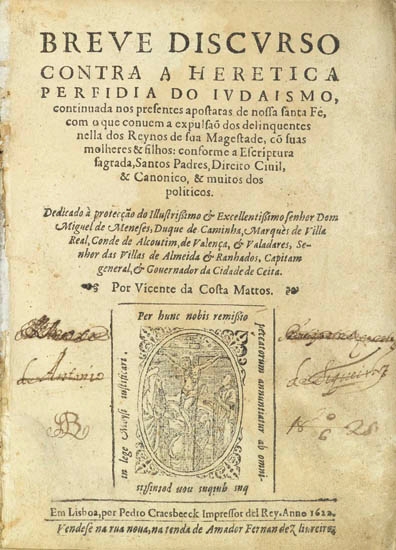 BREVE DISCVRSO
CONTRA A HERETICA
PERFIDIA DO IVDAISMO,
continuada nos presentes apostatas de nossa santa Fé,
com o que conuem a expulsaõ dos delinquentes
nella dos Reynos de sua Magestade, cõ suas
molheres & filhos: conforme a Escriptura
sagrada, Santos Padres, Direito Ciuil,
& Canonico, & muitos dos
politicos.
Dedicado à protecção do Illustrissimo & Excellentissimo senhor Dom
Miguel de Meneses, Duque de Caminha, Marquès de Villa
Real, Conde de Alcoutim, de Valença, & Valadares, Se-
nhor das Villas de Almeida & Ranhados, Capitam
general, & Gouernador da Cidade de Ceita.
Por Vicente da Costa Mattos.
Per hunc nobis remissio
peccatorum annuntiatur ab omni-
bus quibus non potuistis
in lege Moysi iustificari.
de Antonio
de Siqueira
Em Lisboa, por Pedro Craesbeeck Impressor del Rey. Anno 1622.
Vendese na rua noua, na tenda de Amador Fernandez liureiro